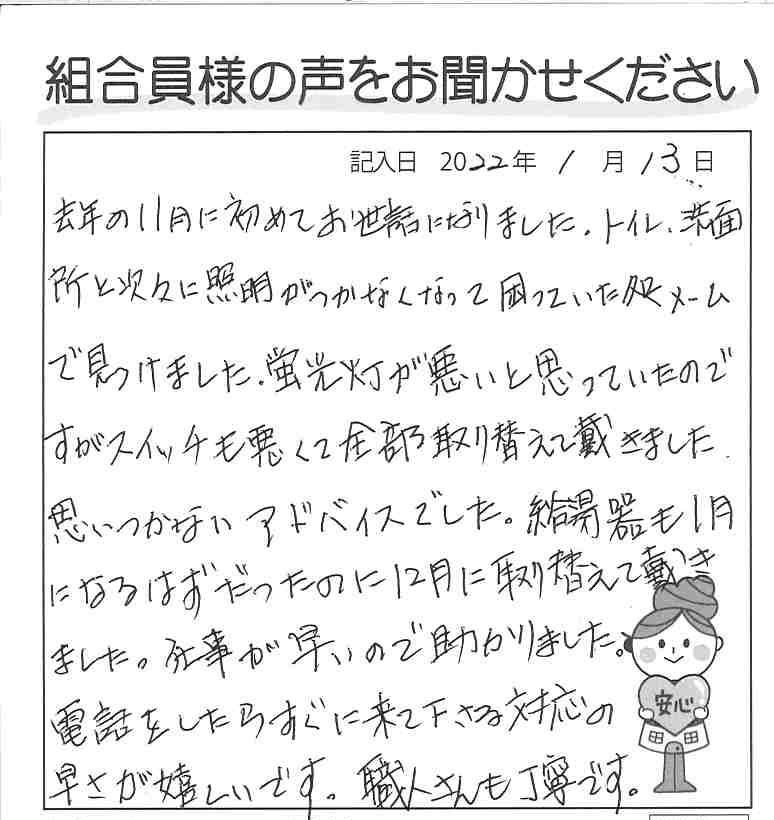 組合員様の声をお聞かせください
記入日 2022年 1月 13日
去年の11月に初めてお世話になりました。トイレ、洗面
所と次々に照明がつかなくなって困っていた処メーム
で見つけました。蛍光灯が悪いと思っていたので
すがスイッチも悪くて全部取り替えて戴きました。
思いつかないアドバイスでした。給湯器も1月
になるはずだったのに12月に取り替えて戴き
ました。仕事が早いので助かりました。
電話をしたらすぐに来て下さる対応の
早さが嬉しいです。職人さんも丁寧です。
安心